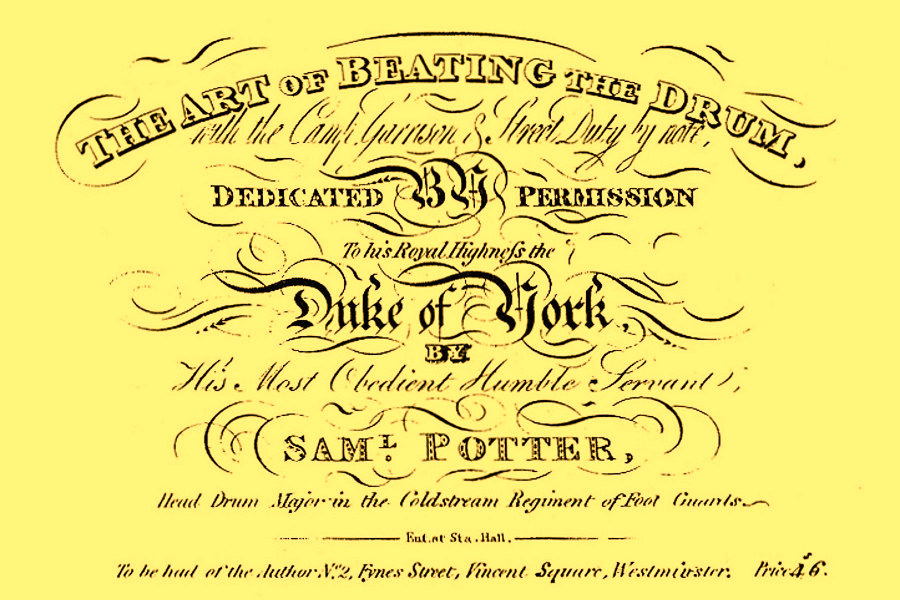 THE ART OF BEATING THE DRUM,
with the Camp, Garrison & Street Duty by note,
DEDICATED BY PERMISSION
To his Royal Highneſs the
Duke of York,
BY
His Most Obedient Humble Servant,
SAML. POTTER,
Head Drum Major in the Coldstream Regiment of Foot Guards
Ent. at Sta. Hall.
To be had of the Author No. 2, Fynes Street, Vincent Square, Westminster. Price 4s 6.